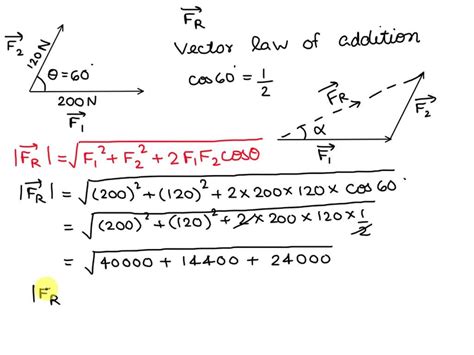 F⃗_R
Vector law of addition
cos60° = 1/2
F⃗₂
120N
θ = 60°
200N
F⃗₁
F⃗_R
F⃗₂
α
F⃗₁
|F⃗_R| = √(F₁² + F₂² + 2F₁F₂cosθ)
|F⃗_R| = √((200)² + (120)² + 2 × 200 × 120 × cos 60°)
= √((200)² + (120)² + 2 × 200 × 120 × 1/2)
= √(40000 + 14400 + 24000)
|F_R